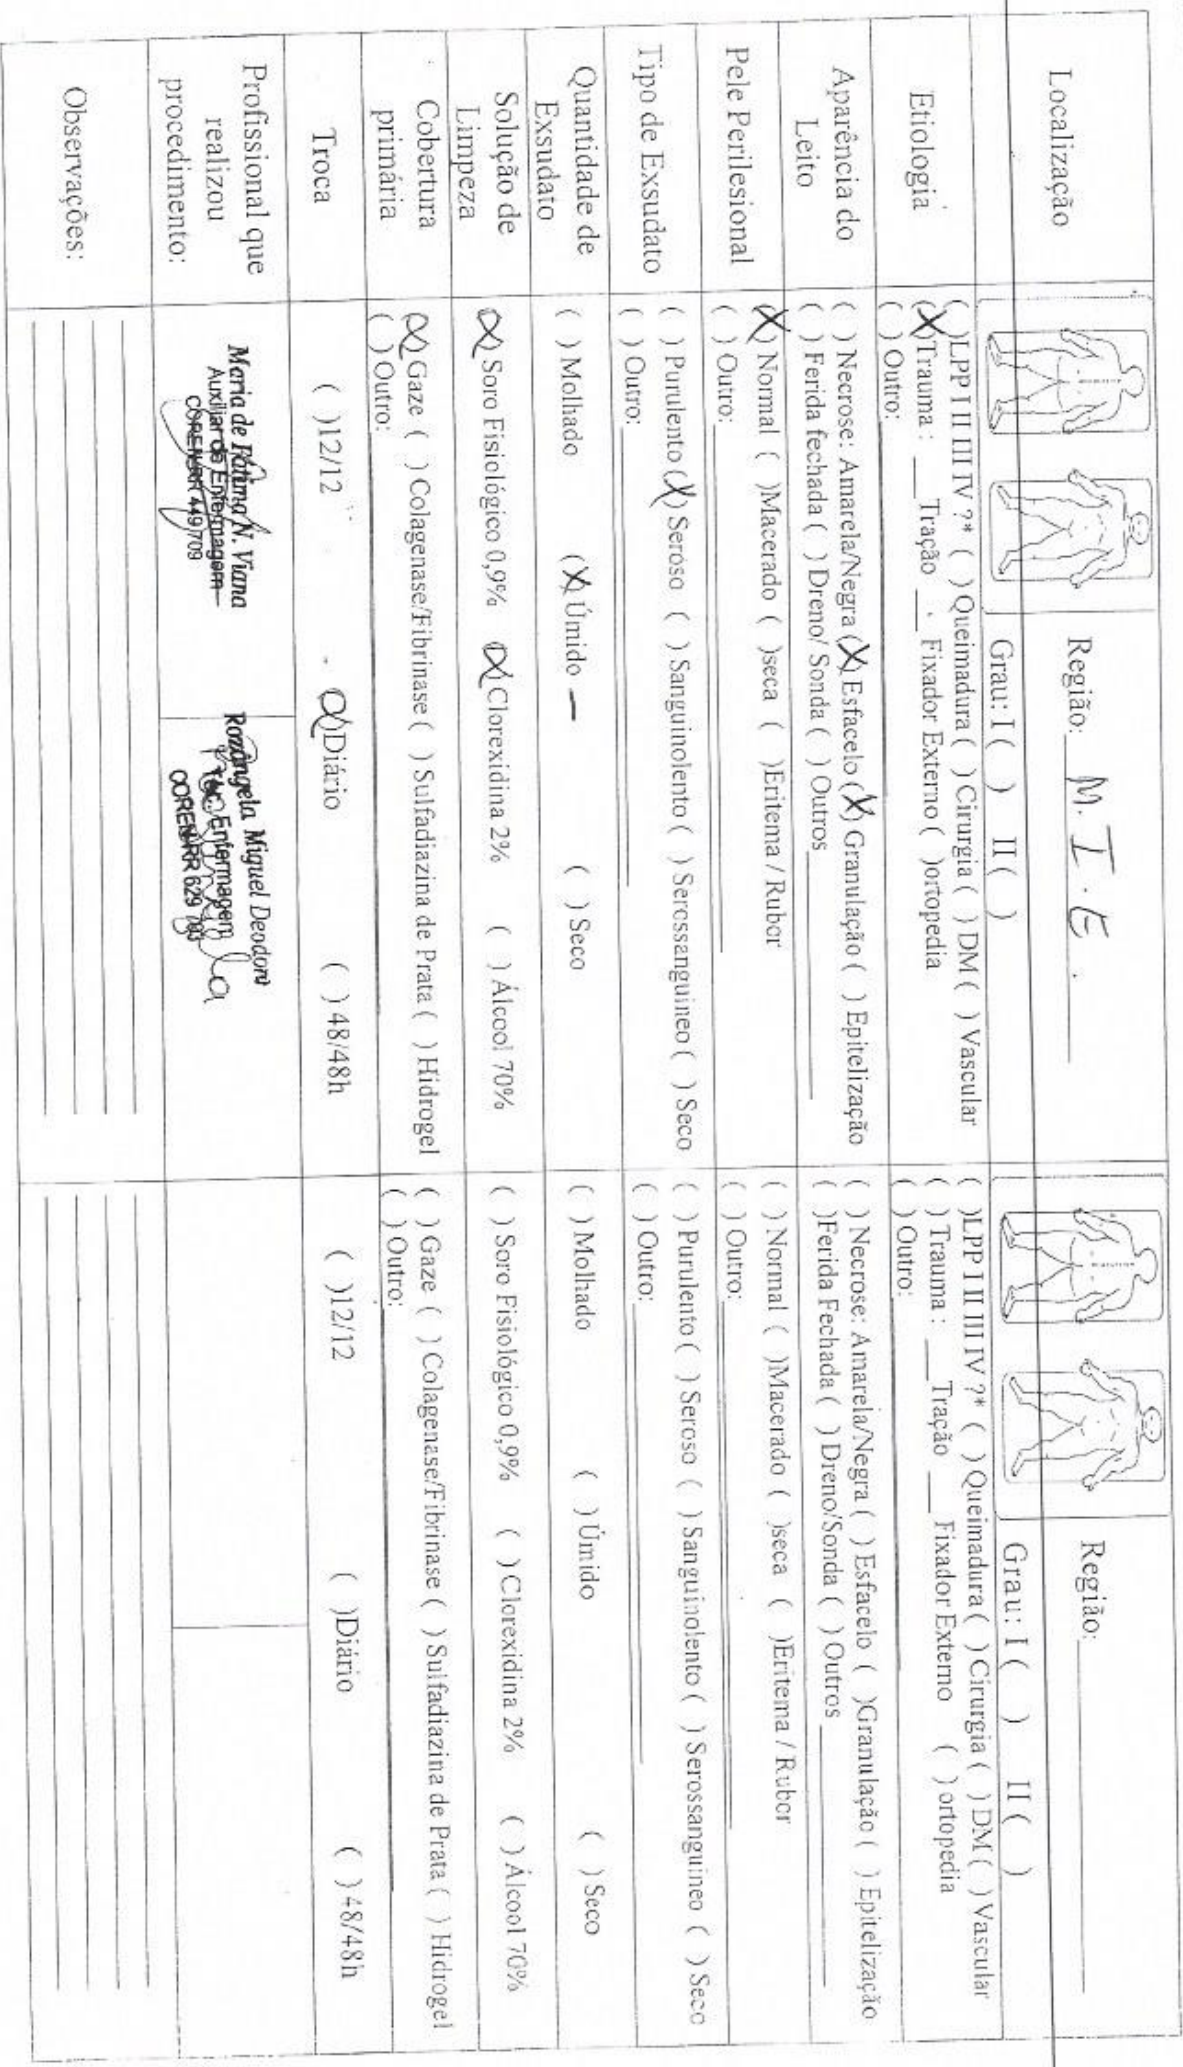 Localização
Região: M. I. E.
Região:
Grau: I ( ) II ( )
Grau: I ( ) II ( )
Etiologia
( )LPP I II III IV ?* ( ) Queimadura ( ) Cirurgia ( ) DM ( ) Vascular
(X)Trauma : ___ Tração ___ Fixador Externo ( )ortopedia
( ) Outro:
( )LPP I II III IV ?* ( ) Queimadura ( ) Cirurgia ( ) DM ( ) Vascular
( ) Trauma : ___ Tração ___ Fixador Externo ( ) ortopedia
( ) Outro:
Aparência do
Leito
( ) Necrose: Amarela/Negra (X) Esfacelo (X) Granulação ( ) Epitelização
( ) Ferida fechada ( ) Dreno/ Sonda ( ) Outros
( ) Necrose: Amarela/Negra ( ) Esfacelo ( )Granulação ( ) Epitelização
( )Ferida Fechada ( ) Dreno/Sonda ( ) Outros
Pele Perilesional
(X) Normal ( )Macerado ( )seca ( )Eritema / Rubor
( ) Outro:
( ) Normal ( )Macerado ( )seca ( )Eritema / Rubor
( ) Outro:
Tipo de Exsudato
( ) Purulento (X) Seroso ( ) Sanguinolento ( ) Serossanguineo ( ) Seco
( ) Outro:
( ) Purulento ( ) Seroso ( ) Sanguinolento ( ) Serossanguineo ( ) Seco
( ) Outro:
Quantidade de
Exsudato
( ) Molhado (X) Úmido — ( ) Seco
( ) Molhado ( ) Úmido ( ) Seco
Solução de
Limpeza
(X) Soro Fisiológico 0,9% (X) Clorexidina 2% ( ) Álcool 70%
( ) Soro Fisiológico 0,9% ( ) Clorexidina 2% ( ) Álcool 70%
Cobertura
primária
(X) Gaze ( ) Colagenase/Fibrinase ( ) Sulfadiazina de Prata ( ) Hidrogel
( ) Outro:
( ) Gaze ( ) Colagenase/Fibrinase ( ) Sulfadiazina de Prata ( ) Hidrogel
( ) Outro:
Troca
( )12/12 (X)Diário ( ) 48/48h
( )12/12 ( )Diário ( ) 48/48h
Profissional que
realizou
procedimento:
Maria de Fátima N. Viana
Auxiliar de Enfermagem
COREN-RR 449709
Rozângela Miguel Deodoro
Téc. Enfermagem
COREN-RR 629
Observações: